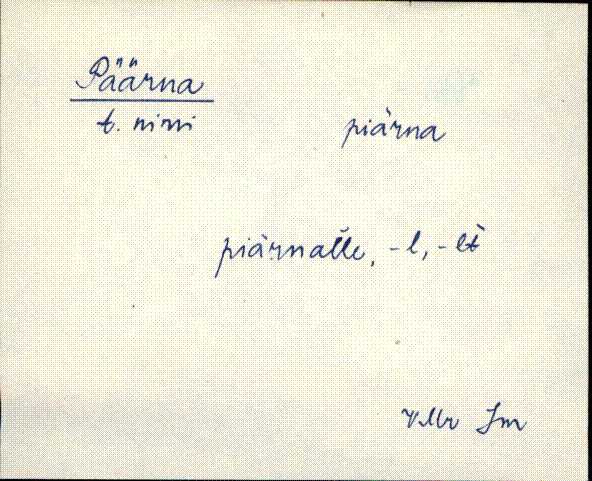 Päärna
t. nimi piàrna
piàrnalle, -l, -lt̀
VMr Jm